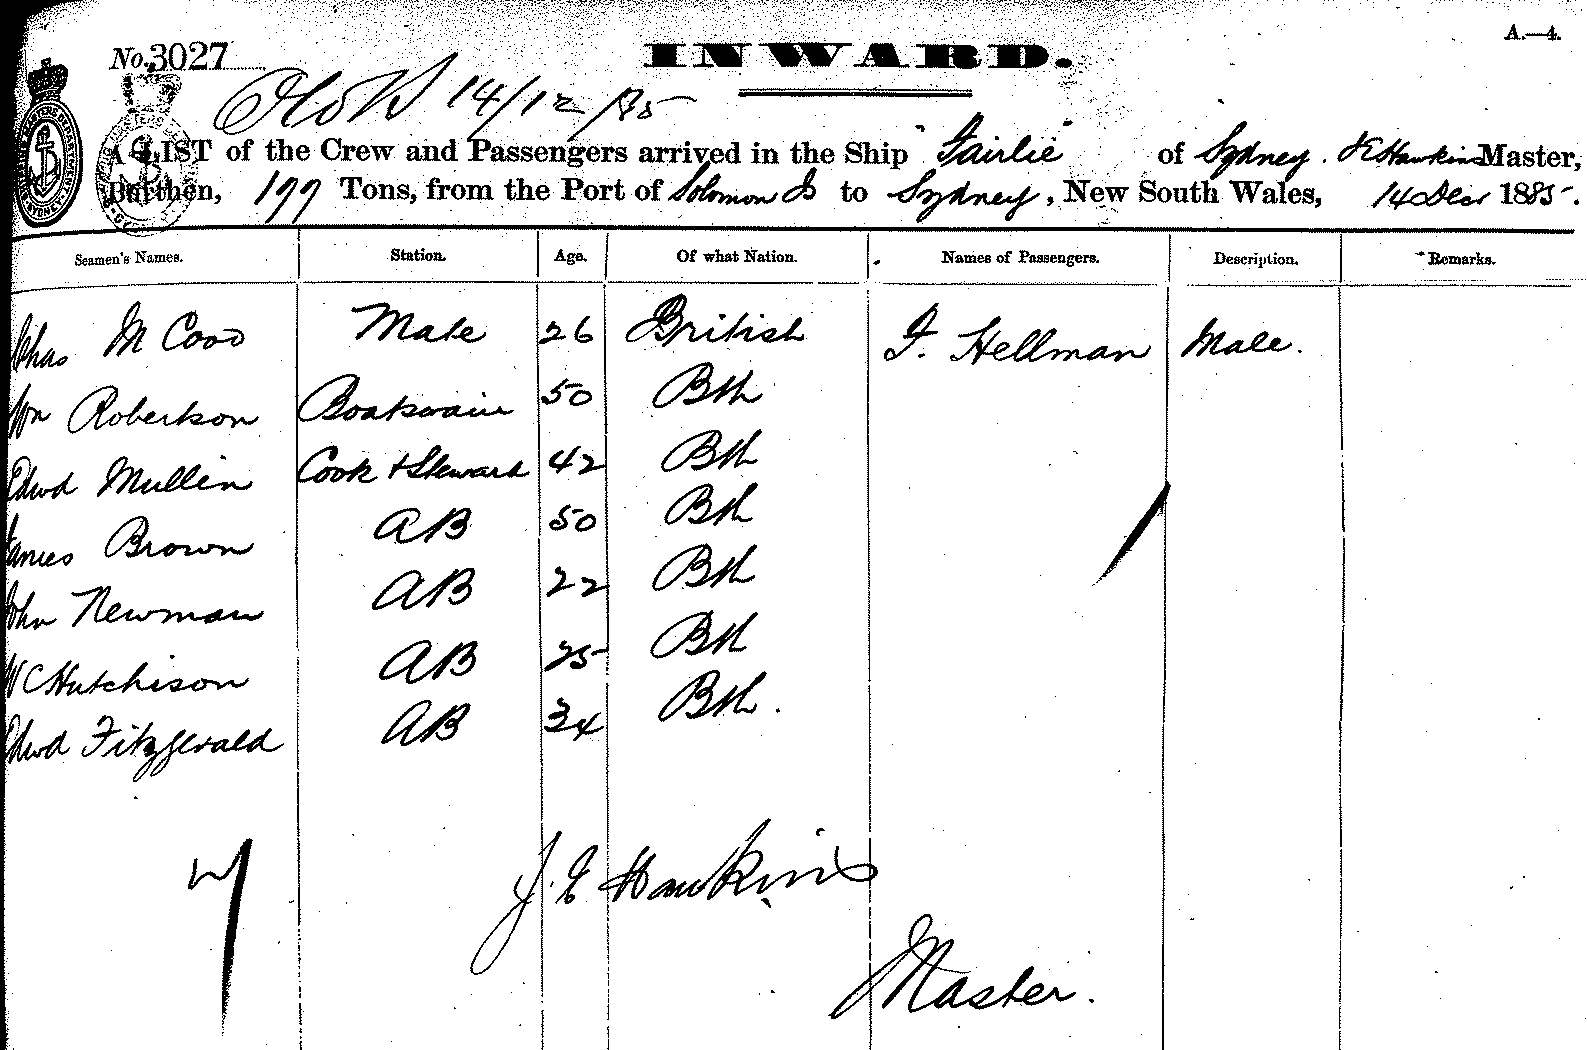 A.—4.
No. 3027
INWARD.
14/12/85
A LIST of the Crew and Passengers arrived in the Ship "Fairlie" of Sydney. J E Hawkins Master,
Burthen, 177 Tons, from the Port of Solomon Is to Sydney, New South Wales, 14 Decr 1885.
Seamen's Names. Station. Age. Of what Nation. Names of Passengers. Description. Remarks.
Chas Mate 26 British F. Hellman Male.
Wm Robertson Boatswain 50 Bth
Edwd Mullin Cook & Steward 42 Bth
James Brown AB 50 Bth
John Newman AB 22 Bth
W C Hutchison AB 25 Bth
Edwd Fitzgerald AB 34 Bth.
7
J. E Hawkins
Master.